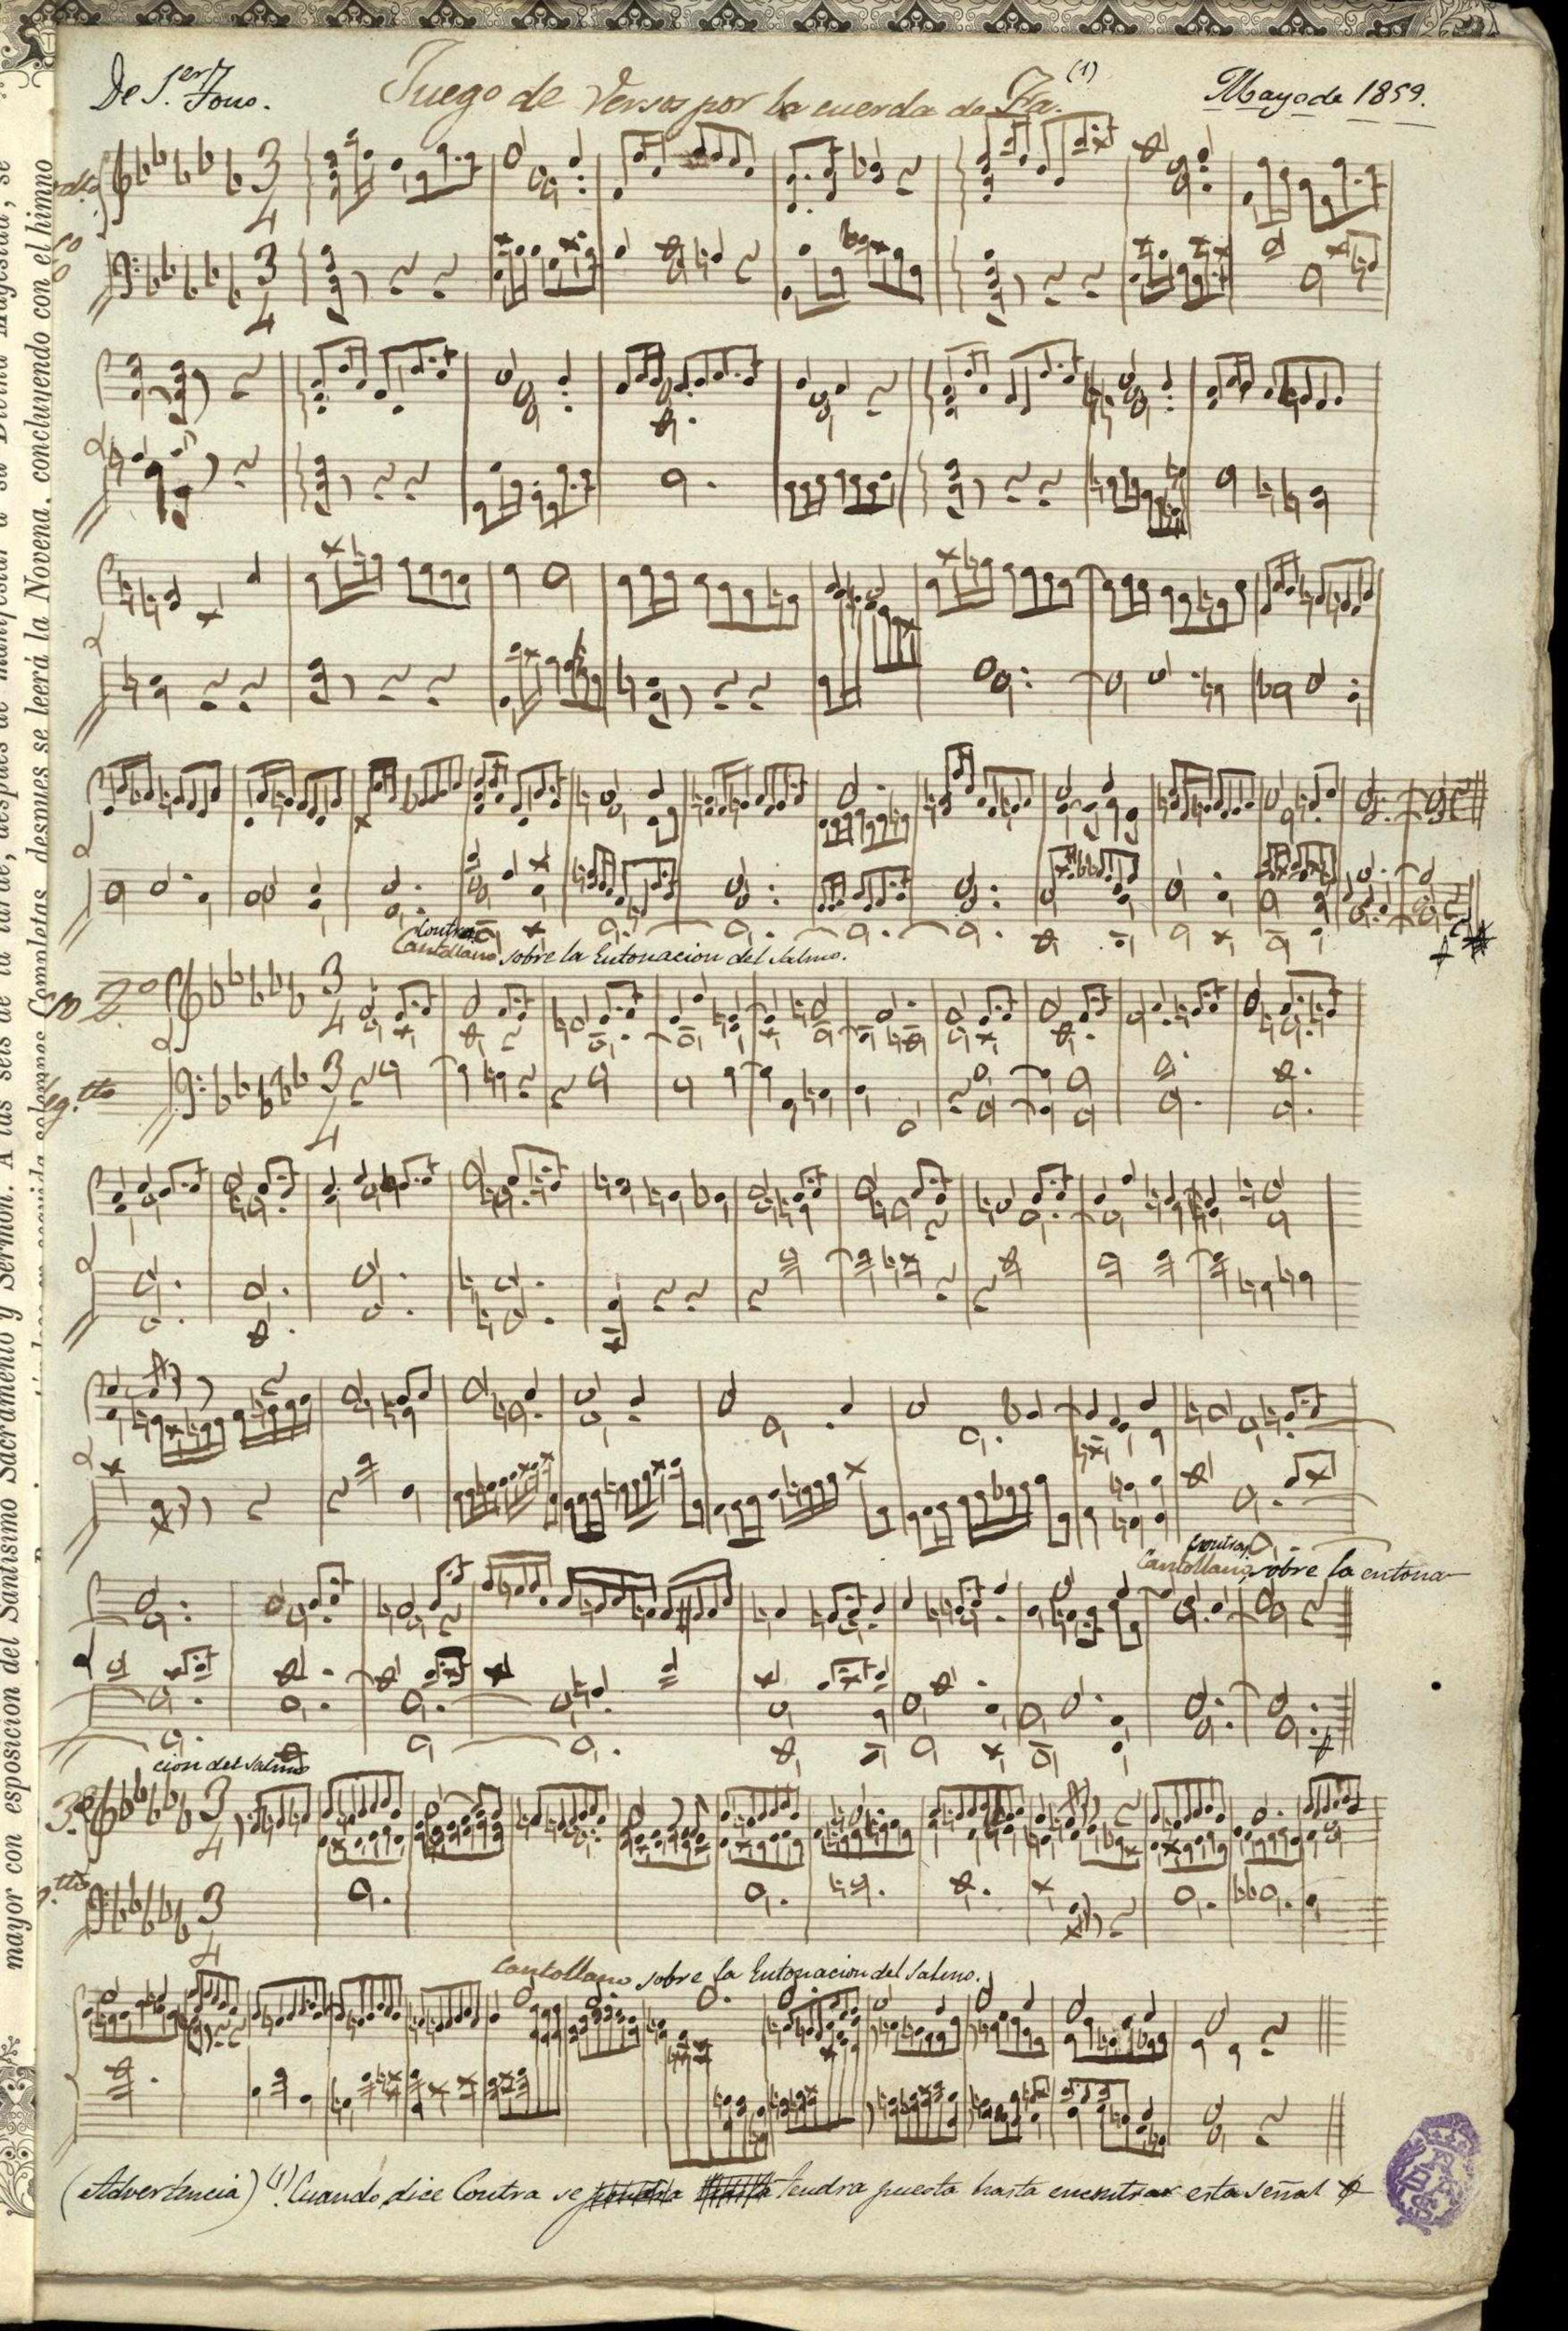 De 1.er Tono.
Juego de Versos por la cuerda de Fa. (1)
Mayo de 1859.
3
4
3
4
Contra
Cantollano sobre la Entonacion del Salmo.
2º
3
4
3
4
Contra
Cantollano sobre la entona-
cion del Salmo
3º
3
4
3
4
Cantollano sobre la Entonacion del Salmo.
(Advertencia) (1) Cuando dice Contra se tendra puesta hasta encontrar esta señal
mayor con esposicion del Santisimo Sacramento y Sermon. A las seis de la tarde, despues de manifestar á su Divina Magestad, se
leerá la Novena, concluyendo con el himno